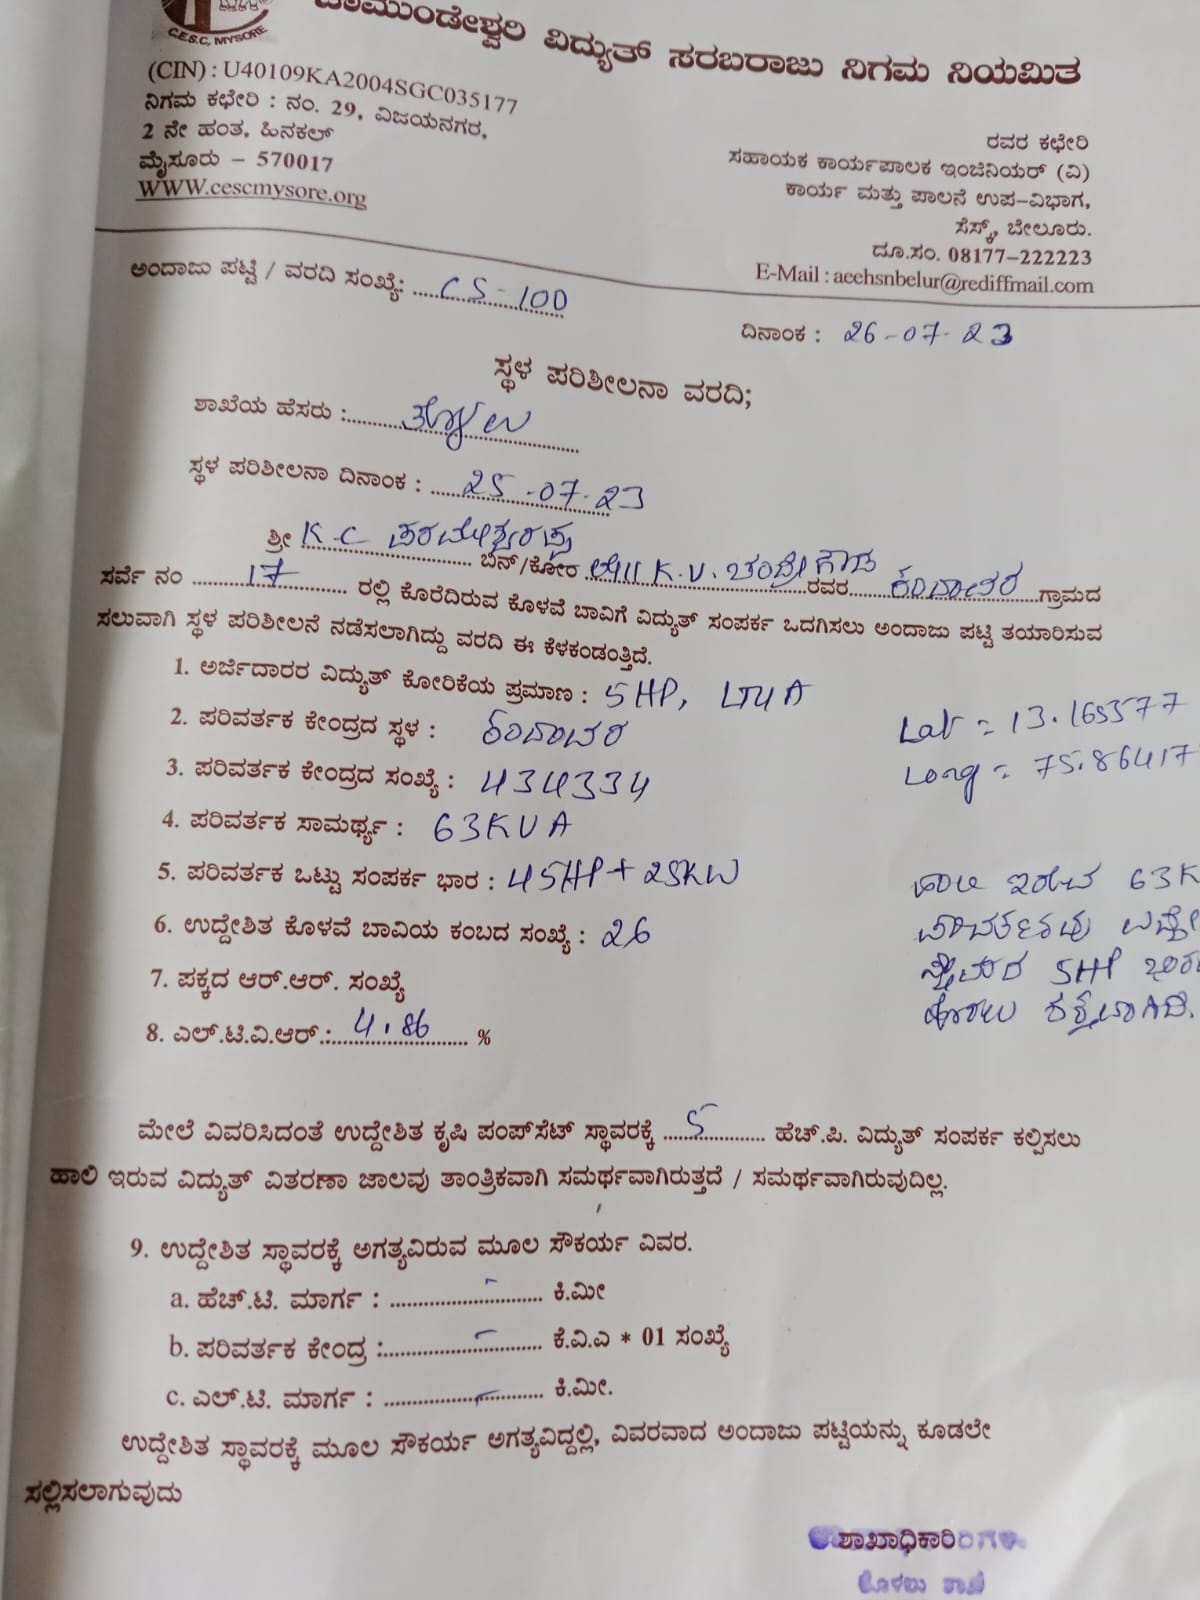 C.E.S.C, MYSORE
ಚಾಮುಂಡೇಶ್ವರಿ ವಿದ್ಯುತ್ ಸರಬರಾಜು ನಿಗಮ ನಿಯಮಿತ
(CIN) : U40109KA2004SGC035177
ನಿಗಮ ಕಛೇರಿ : ನಂ. 29, ವಿಜಯನಗರ,
2 ನೇ ಹಂತ, ಹಿನಕಲ್
ಮೈಸೂರು – 570017
WWW.cescmysore.org
ರವರ ಕಛೇರಿ
ಸಹಾಯಕ ಕಾರ್ಯಪಾಲಕ ಇಂಜಿನಿಯರ್ (ವಿ)
ಕಾರ್ಯ ಮತ್ತು ಪಾಲನೆ ಉಪ–ವಿಭಾಗ,
ಸೆಸ್ಕ್, ಬೇಲೂರು.
ದೂ.ಸಂ. 08177–222223
E-Mail : aeehsnbelur@rediffmail.com
ಅಂದಾಜು ಪಟ್ಟಿ / ವರದಿ ಸಂಖ್ಯೆ: CS-100
ದಿನಾಂಕ : 26-07-23
ಸ್ಥಳ ಪರಿಶೀಲನಾ ವರದಿ;
ಶಾಖೆಯ ಹೆಸರು :
ಸ್ಥಳ ಪರಿಶೀಲನಾ ದಿನಾಂಕ : 25-07-23
ಶ್ರೀ K C ಪರಮೇಶ್ವರಪ್ಪ ಬಿನ್/ಕೋರಿ K.V. ಚಂದ್ರೇಗೌಡ ರವರ ಕಂದಾವರ ಗ್ರಾಮದ
ಸರ್ವೆ ನಂ 17 ರಲ್ಲಿ ಕೊರೆದಿರುವ ಕೊಳವೆ ಬಾವಿಗೆ ವಿದ್ಯುತ್ ಸಂಪರ್ಕ ಒದಗಿಸಲು ಅಂದಾಜು ಪಟ್ಟಿ ತಯಾರಿಸುವ
ಸಲುವಾಗಿ ಸ್ಥಳ ಪರಿಶೀಲನೆ ನಡೆಸಲಾಗಿದ್ದು ವರದಿ ಈ ಕೆಳಕಂಡಂತ್ತಿದೆ.
1. ಅರ್ಜಿದಾರರ ವಿದ್ಯುತ್ ಕೋರಿಕೆಯ ಪ್ರಮಾಣ : 5HP, LT4A
2. ಪರಿವರ್ತಕ ಕೇಂದ್ರದ ಸ್ಥಳ : ಕಂದಾವರ
Lat = 13.165577
3. ಪರಿವರ್ತಕ ಕೇಂದ್ರದ ಸಂಖ್ಯೆ : 434334
Long = 75.86417
4. ಪರಿವರ್ತಕ ಸಾಮರ್ಥ್ಯ : 63KVA
5. ಪರಿವರ್ತಕ ಒಟ್ಟು ಸಂಪರ್ಕ ಭಾರ : 45HP+25KW
ಹಾಲಿ ಇರುವ 63K
6. ಉದ್ದೇಶಿತ ಕೊಳವೆ ಬಾವಿಯ ಕಂಬದ ಸಂಖ್ಯೆ : 26
7. ಪಕ್ಕದ ಆರ್.ಆರ್. ಸಂಖ್ಯೆ
5HP
8. ಎಲ್.ಟಿ.ವಿ.ಆರ್ : 4.86 %
ಮೇಲೆ ವಿವರಿಸಿದಂತೆ ಉದ್ದೇಶಿತ ಕೃಷಿ ಪಂಪ್‌ಸೆಟ್ ಸ್ಥಾವರಕ್ಕೆ 5 ಹೆಚ್.ಪಿ. ವಿದ್ಯುತ್ ಸಂಪರ್ಕ ಕಲ್ಪಿಸಲು
ಹಾಲಿ ಇರುವ ವಿದ್ಯುತ್ ವಿತರಣಾ ಜಾಲವು ತಾಂತ್ರಿಕವಾಗಿ ಸಮರ್ಥವಾಗಿರುತ್ತದೆ / ಸಮರ್ಥವಾಗಿರುವುದಿಲ್ಲ.
9. ಉದ್ದೇಶಿತ ಸ್ಥಾವರಕ್ಕೆ ಅಗತ್ಯವಿರುವ ಮೂಲ ಸೌಕರ್ಯ ವಿವರ.
a. ಹೆಚ್.ಟಿ. ಮಾರ್ಗ : – ಕಿ.ಮೀ
b. ಪರಿವರ್ತಕ ಕೇಂದ್ರ : – ಕೆ.ವಿ.ಎ * 01 ಸಂಖ್ಯೆ
c. ಎಲ್.ಟಿ. ಮಾರ್ಗ : – ಕಿ.ಮೀ.
ಉದ್ದೇಶಿತ ಸ್ಥಾವರಕ್ಕೆ ಮೂಲ ಸೌಕರ್ಯ ಅಗತ್ಯವಿದ್ದಲ್ಲಿ, ವಿವರವಾದ ಅಂದಾಜು ಪಟ್ಟಿಯನ್ನು ಕೂಡಲೇ
ಸಲ್ಲಿಸಲಾಗುವುದು
ಶಾಖಾಧಿಕಾರಿ